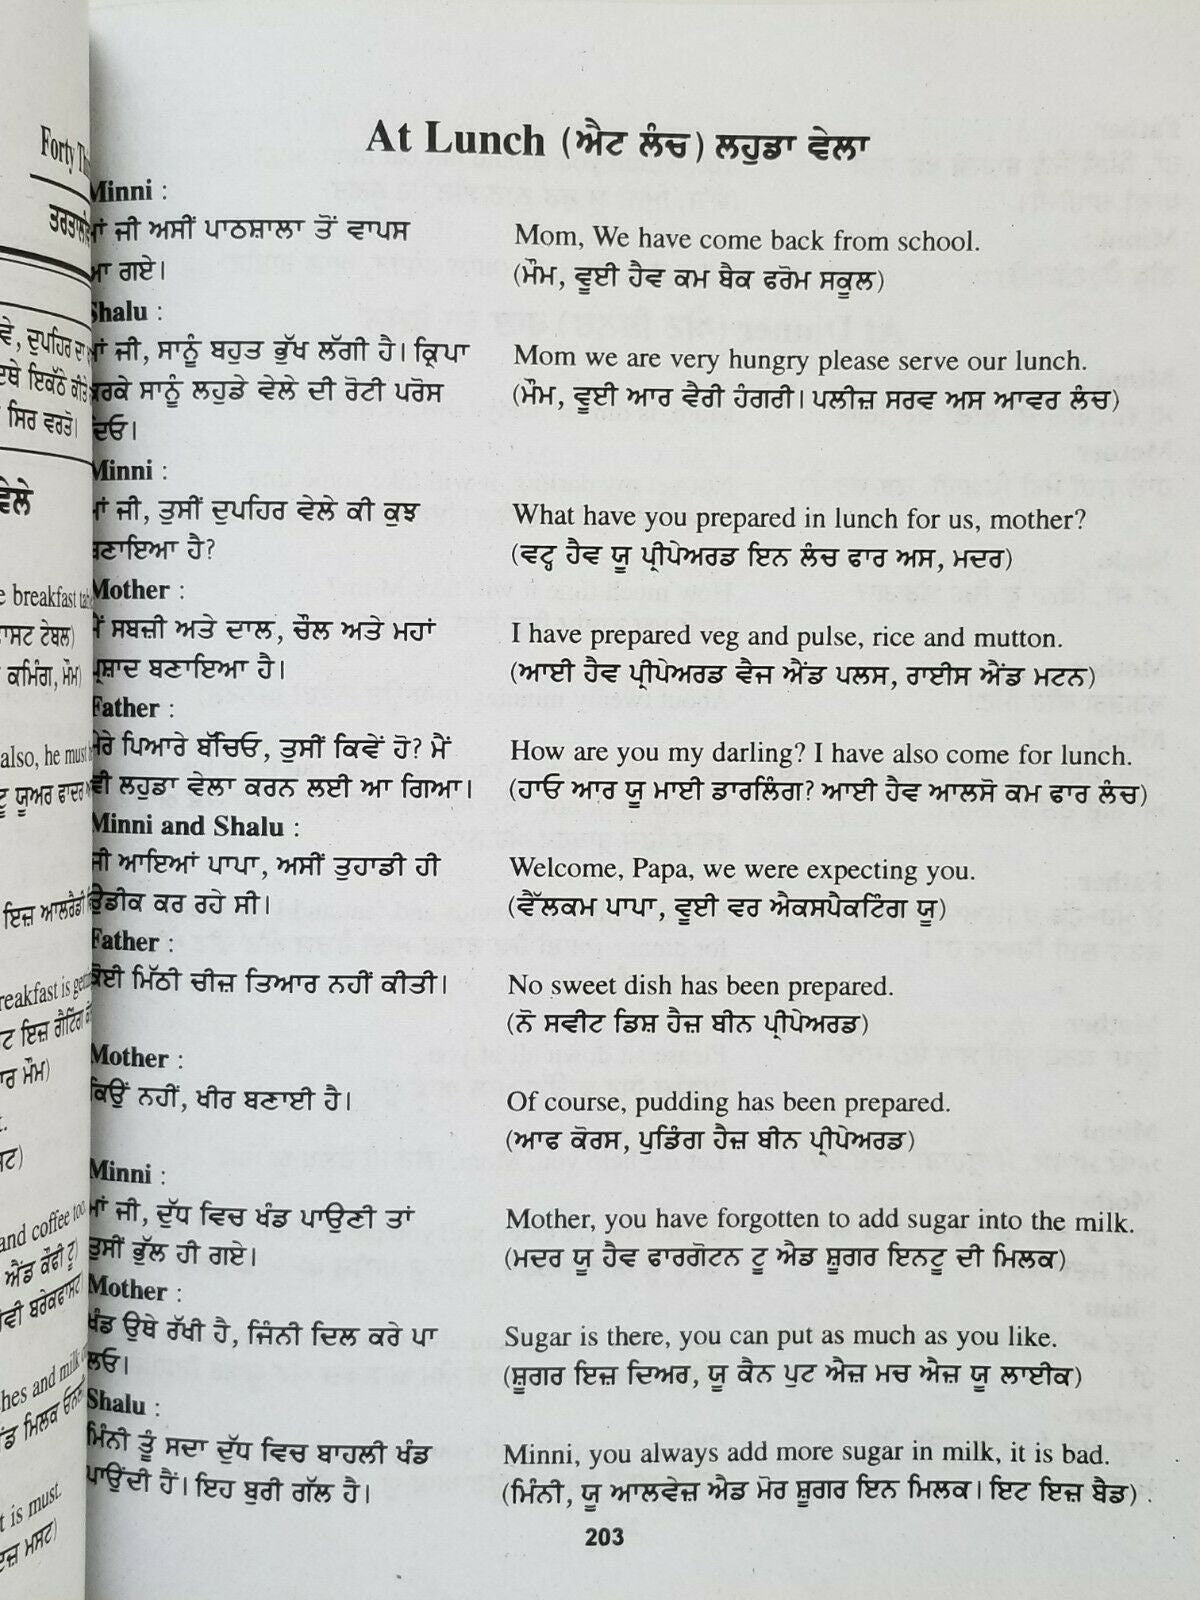 At Lunch (ਐਟ ਲੰਚ) ਲਹੁਡਾ ਵੇਲਾ
Minni :
ਮਾਂ ਜੀ ਅਸੀਂ ਪਾਠਸ਼ਾਲਾ ਤੋਂ ਵਾਪਸ
ਆ ਗਏ।
Mom, We have come back from school.
(ਮੌਮ, ਵੂਈ ਹੈਵ ਕਮ ਬੈਕ ਫਰੋਮ ਸਕੂਲ)
Shalu :
ਮਾਂ ਜੀ, ਸਾਨੂੰ ਬਹੁਤ ਭੁੱਖ ਲੱਗੀ ਹੈ। ਕ੍ਰਿਪਾ
ਕਰਕੇ ਸਾਨੂੰ ਲਹੁਡੇ ਵੇਲੇ ਦੀ ਰੋਟੀ ਪਰੋਸ
ਦਿਓ।
Mom we are very hungry please serve our lunch.
(ਮੌਮ, ਵੂਈ ਆਰ ਵੈਰੀ ਹੰਗਰੀ। ਪਲੀਜ਼ ਸਰਵ ਅਸ ਆਵਰ ਲੰਚ)
Minni :
ਮਾਂ ਜੀ, ਤੁਸੀਂ ਦੁਪਹਿਰ ਵੇਲੇ ਕੀ ਕੁਝ
ਬਣਾਇਆ ਹੈ?
What have you prepared in lunch for us, mother?
(ਵਟ੍ਹ ਹੈਵ ਯੂ ਪ੍ਰੀਪੇਅਰਡ ਇਨ ਲੰਚ ਫਾਰ ਅਸ, ਮਦਰ)
Mother :
ਮੈਂ ਸਬਜ਼ੀ ਅਤੇ ਦਾਲ, ਚੌਲ ਅਤੇ ਮਹਾਂ
ਪ੍ਰਸ਼ਾਦ ਬਣਾਇਆ ਹੈ।
I have prepared veg and pulse, rice and mutton.
(ਆਈ ਹੈਵ ਪ੍ਰੀਪੇਅਰਡ ਵੈਜ ਐਂਡ ਪਲਸ, ਰਾਈਸ ਐਂਡ ਮਟਨ)
Father :
ਮੇਰੇ ਪਿਆਰੇ ਬੱਚਿਓ, ਤੁਸੀਂ ਕਿਵੇਂ ਹੋ? ਮੈਂ
ਵੀ ਲਹੁਡਾ ਵੇਲਾ ਕਰਨ ਲਈ ਆ ਗਿਆ।
How are you my darling? I have also come for lunch.
(ਹਾਓ ਆਰ ਯੂ ਮਾਈ ਡਾਰਲਿੰਗ? ਆਈ ਹੈਵ ਆਲਸੋ ਕਮ ਫਾਰ ਲੰਚ)
Minni and Shalu :
ਜੀ ਆਇਆਂ ਪਾਪਾ, ਅਸੀਂ ਤੁਹਾਡੀ ਹੀ
ਉਡੀਕ ਕਰ ਰਹੇ ਸੀ।
Welcome, Papa, we were expecting you.
(ਵੈੱਲਕਮ ਪਾਪਾ, ਵੂਈ ਵਰ ਐਕਸਪੈਕਟਿੰਗ ਯੂ)
Father :
ਕੋਈ ਮਿੱਠੀ ਚੀਜ਼ ਤਿਆਰ ਨਹੀਂ ਕੀਤੀ।
No sweet dish has been prepared.
(ਨੋ ਸਵੀਟ ਡਿਸ਼ ਹੈਜ਼ ਬੀਨ ਪ੍ਰੀਪੇਅਰਡ)
Mother :
ਕਿਉਂ ਨਹੀਂ, ਖੀਰ ਬਣਾਈ ਹੈ।
Of course, pudding has been prepared.
(ਆਫ ਕੋਰਸ, ਪੁਡਿੰਗ ਹੈਜ਼ ਬੀਨ ਪ੍ਰੀਪੇਅਰਡ)
Minni :
ਮਾਂ ਜੀ, ਦੁੱਧ ਵਿਚ ਖੰਡ ਪਾਉਣੀ ਤਾਂ
ਤੁਸੀਂ ਭੁੱਲ ਹੀ ਗਏ।
Mother, you have forgotten to add sugar into the milk.
(ਮਦਰ ਯੂ ਹੈਵ ਫਾਰਗੋਟਨ ਟੂ ਐਡ ਸ਼ੂਗਰ ਇਨਟੂ ਦੀ ਮਿਲਕ)
Mother :
ਖੰਡ ਉਥੇ ਰੱਖੀ ਹੈ, ਜਿੰਨੀ ਦਿਲ ਕਰੇ ਪਾ
ਲਓ।
Sugar is there, you can put as much as you like.
(ਸ਼ੂਗਰ ਇਜ਼ ਦਿਅਰ, ਯੂ ਕੈਨ ਪੁਟ ਐਜ਼ ਮਚ ਐਜ਼ ਯੂ ਲਾਈਕ)
Shalu :
ਮਿੰਨੀ ਤੂੰ ਸਦਾ ਦੁੱਧ ਵਿਚ ਬਾਹਲੀ ਖੰਡ
ਪਾਉਂਦੀ ਹੈਂ। ਇਹ ਬੁਰੀ ਗੱਲ ਹੈ।
Minni, you always add more sugar in milk, it is bad.
(ਮਿੰਨੀ, ਯੂ ਆਲਵੇਜ਼ ਐਡ ਮੋਰ ਸ਼ੂਗਰ ਇਨ ਮਿਲਕ। ਇਟ ਇਜ਼ ਬੈਡ) .
203